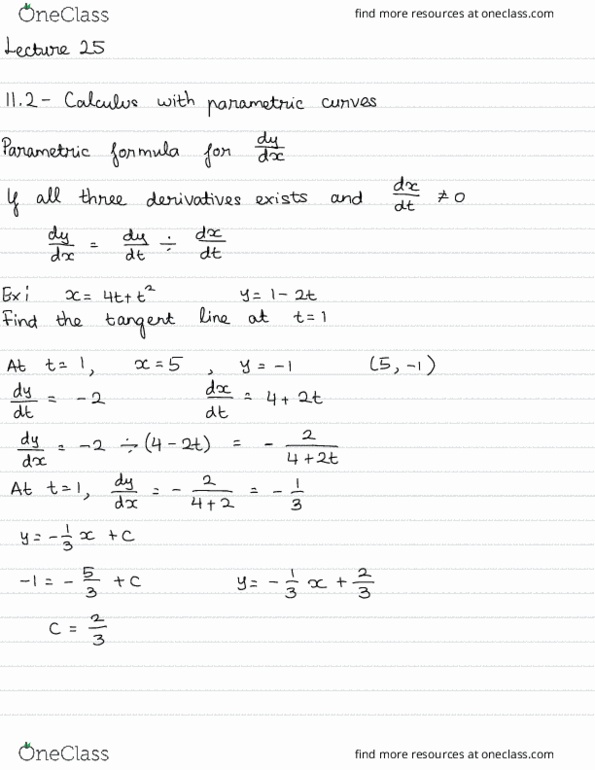 OneClass find more resources at oneclass.com
Lecture 25
11.2 - Calculus with parametric curves
Parametric formula for dy/dx
If all three derivatives exists and dx/dt ≠ 0
dy/dx = dy/dt ÷ dx/dt
Ex: x = 4t + t² y = 1 - 2t
Find the tangent line at t = 1
At t = 1, x = 5, y = -1 (5, -1)
dy/dt = -2 dx/dt = 4 + 2t
dy/dx = -2 ÷ (4 - 2t) = - 2/(4 + 2t)
At t = 1, dy/dx = - 2/(4 + 2) = - 1/3
y = - 1/3 x + C
-1 = - 5/3 + C y = - 1/3 x + 2/3
C = 2/3
OneClass find more resources at oneclass.com